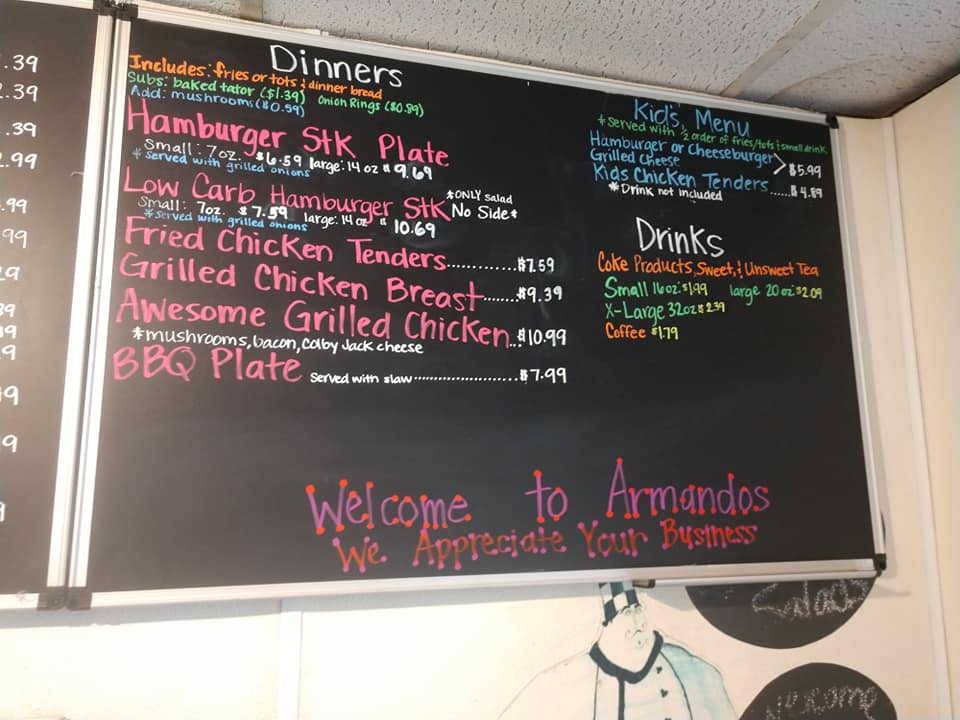 .39
2.39
.39
2.99
.99
99
29
39
.9
9
9
9
Dinners
Includes: fries or tots & dinner bread
Subs: baked tator ($1.39) Onion Rings ($0.89)
Add: mushrooms ($0.59)
Hamburger Stk Plate
Small: 7oz. $6.59 large: 14 oz $9.69
*served with grilled onions
Low Carb Hamburger Stk *ONLY salad No Side*
Small: 7oz. $7.59 large: 14 oz $10.69
*served with grilled onions
Fried Chicken Tenders..........$7.59
Grilled Chicken Breast.......$9.39
Awesome Grilled Chicken...$10.99
*mushrooms, bacon, colby Jack cheese
BBQ Plate served with slaw......................$7.99
Kid's Menu
*served with ½ order of fries/tots & small drink
Hamburger or Cheeseburger
Grilled cheese > $5.99
Kids Chicken Tenders......$4.89
*Drink not included
Drinks
Coke Products, Sweet, & Unsweet Tea
Small 16oz: $1.99 large 20 oz: $2.09
X-Large 32oz $2.39
Coffee $1.79
Welcome to Armandos
We Appreciate Your Business